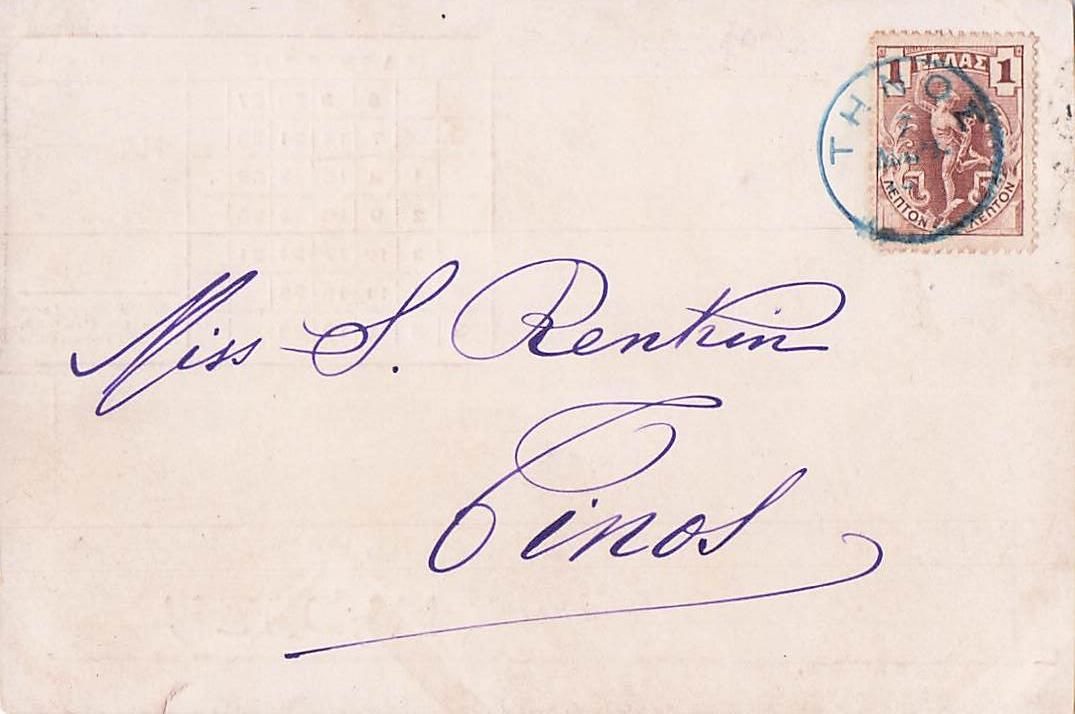 1 ΕΛΛΑΣ 1
ΤΗΝΟΣ
ΛΕΠΤΟΝ ΛΕΠΤΟΝ
Miss S. Renkin
Tinos